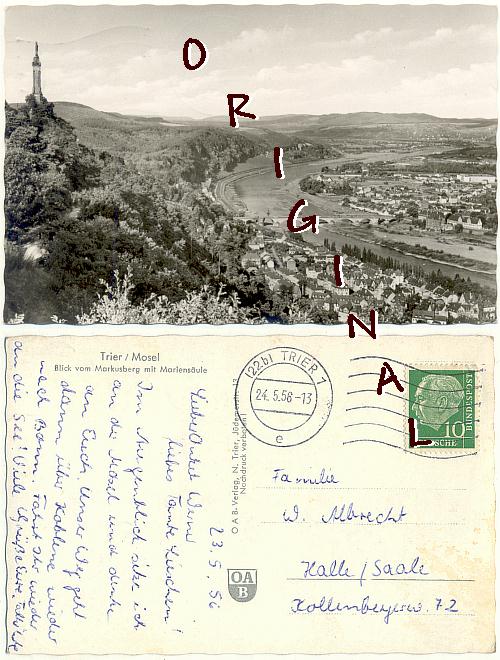 ORIGINAL
Trier / Mosel
Blick vom Markusberg mit Mariensäule
(22b) TRIER 1
24.5.56-13
e
BUNDESPOST
10
SCHE
OAB-Verlag, N. Trier,
Nachdruck verboten!
OA
B
23.5.56
Liebe
liebes Tante Lieschen!
Im Augenblick sitze ich
an die Mosel und denke
an Euch. Unser Weg geht
dann über Koblenz wieder
nach Bonn. Fahrt Ihr wieder
an die See? Viele Grüße
Familie
W. Albrecht
Halle/Saale
Kollenbeyerw. 72